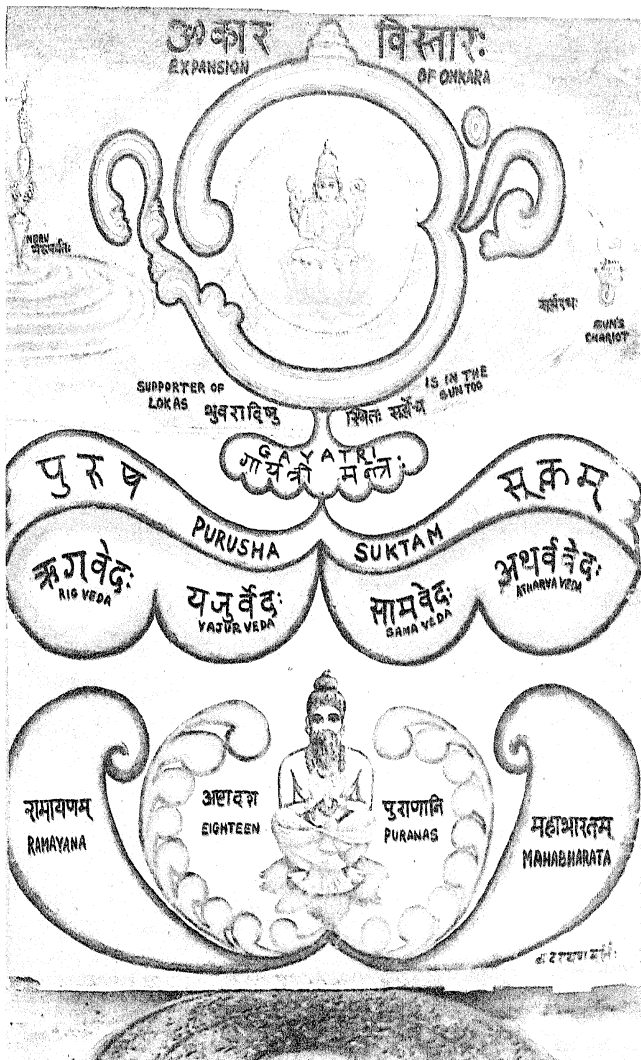 ॐकार विस्तारः
EXPANSION OF OMKARA
MERU
SUN'S
CHARIOT
SUPPORTER OF
LOKAS
भुवरादिषु
IS IN THE
SUN TOO
GAYATRI
गायत्री मन्त्रः
पुरुष सूक्तम्
PURUSHA SUKTAM
ऋगवेदः
RIG VEDA
यजुर्वेदः
YAJUR VEDA
सामवेदः
SAMA VEDA
अथर्ववेदः
ATHARVA VEDA
रामायणम्
RAMAYANA
अष्टादश
EIGHTEEN
पुराणानि
PURANAS
महाभारतम्
MAHABHARATA